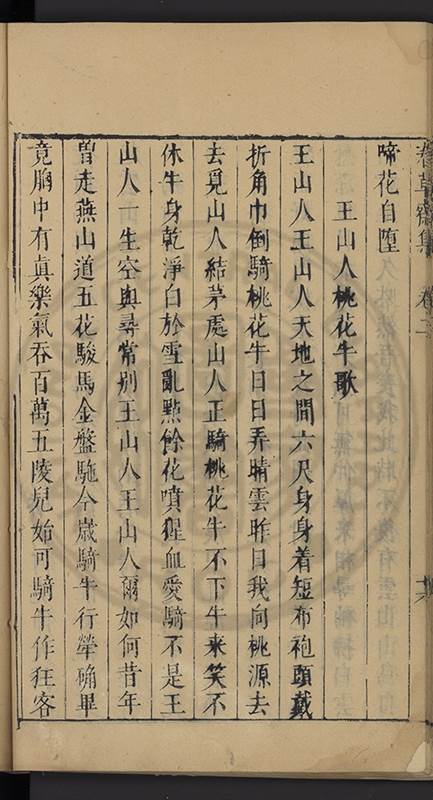 春草齋集 卷二 十八
啼花自墮
王山人桃花牛歌
王山人王山人天地之間六尺身身着短布袍頭戴
折角巾倒騎桃花牛日日弄晴雲昨日我向桃源去
去覓山人結茅處山人正騎桃花牛不下牛来笑不
休牛身乾淨白於雪亂點餘花噴猩血愛騎不是王
山人一生空與尋常別王山人王山人爾如何昔年
曽走燕山道五花駿馬金盤駞今歲騎牛行犖确畢
竟胸中有真樂氣吞百萬五陵兒始可騎牛作狂客